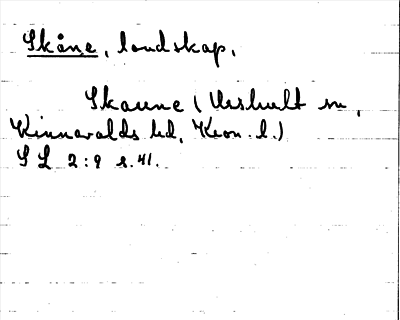 Skåne, landskap.
Skaune (Urshult sn,
Kinnevalds hd, Kron. l.)
SL 2:9 s. 41.